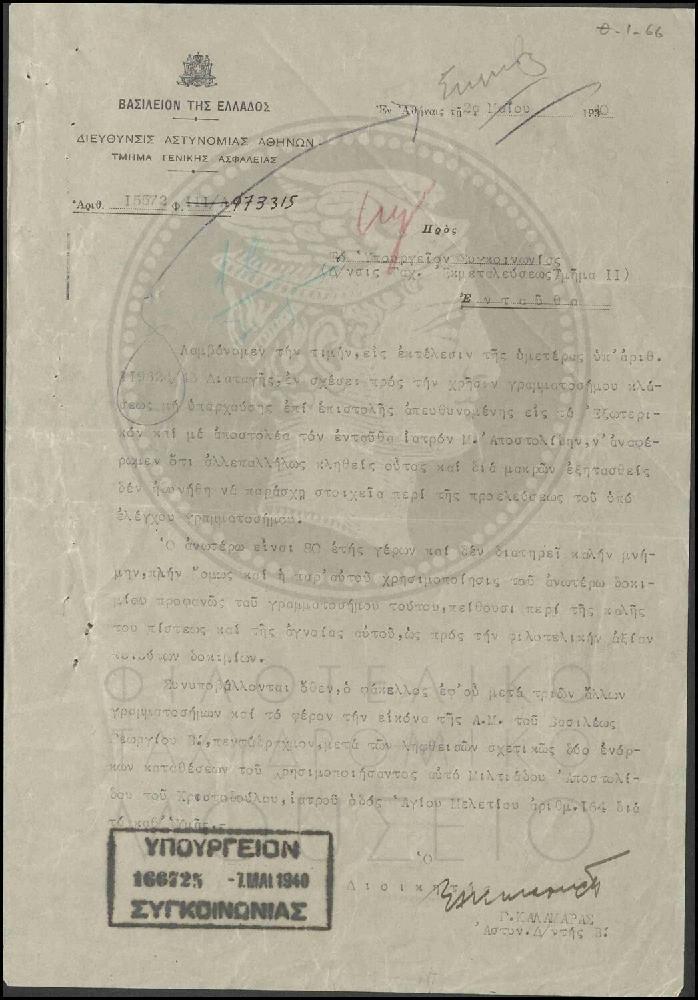 θ-1-66
ΒΑΣΙΛΕΙΟΝ ΤΗΣ ΕΛΛΑΔΟΣ
ΔΙΕΥΘΥΝΣΙΣ ΑΣΤΥΝΟΜΙΑΣ ΑΘΗΝΩΝ
ΤΜΗΜΑ ΓΕΝΙΚΗΣ ΑΣΦΑΛΕΙΑΣ
Ἐν Ἀθήναις τῇ 2α Μαΐου 1940
Ἀριθ. 15572 Φ. 973315
Πρὸς
Τό Ὑπουργεῖον Συγκοινωνίας
(Δ/νσις Ταχ. Ἐκμεταλεύσεως Τμῆμα ΙΙ)
Ἐνταῦθα
Λαμβάνομεν τήν τιμήν, εἰς ἐκτέλεσιν τῆς ὑμετέρας ὑπ' ἀριθ.
Διαταγῆς, ἐν σχέσει πρός τήν χρῆσιν γραμματοσήμου κλά-
σεως μή ὑπαρχούσης ἐπί ἐπιστολῆς ἀπευθυνομένης εἰς τό Ἐξωτερι-
κόν καί μέ ἀποστολέα τόν ἐνταῦθα ἰατρόν Μ. Ἀποστολίδην, ν' ἀναφέ-
ρωμεν ὅτι ἀλλεπαλλήλως κληθείς οὗτος καί διά μακρῶν ἐξητασθείς
δέν ἠδυνήθη νά παράσχῃ στοιχεῖα περί τῆς προελεύσεως τοῦ ὑπό
ἔλεγχον γραμματοσήμου.
Ὁ ἀνωτέρω εἶναι 80 ἐτής γέρων καί δέν διατηρεῖ καλήν μνή-
μην, πλήν ὅμως καί ἡ παρ' αὐτοῦ χρησιμοποίησις τοῦ ἀνωτέρω δοκι-
μίου προφανῶς τοῦ γραμματοσήμου τούτου, πείθουσι περί τῆς καλῆς
του πίστεως καί τῆς ἀγνοίας αὐτοῦ, ὡς πρός τήν φιλοτελικήν ἀξίαν
τοιούτων δοκιμίων.
Συνυποβάλλονται ὅθεν, ὁ φάκελλος ἐφ' οὗ μετά τριῶν ἄλλων
γραμματοσήμων καί τό φέρον τήν εἰκόνα τῆς Α.Μ. τοῦ Βασιλέως
Γεωργίου Β', πεντάδραχμον, μετά τῶν ληφθεισῶν σχετικῶς δύο ἐνόρ-
κων καταθέσεων τοῦ χρησιμοποιήσαντος αὐτό Μιλτιάδου Ἀποστολί-
δου τοῦ Χριστοδούλου, ἰατροῦ ὁδός Ἁγίου Μελετίου ἀριθμ. 164 διά
τά καθ' Ὑμᾶς.-
ΥΠΟΥΡΓΕΙΟΝ
166725 -7.ΜΑΙ 1940
ΣΥΓΚΟΙΝΩΝΙΑΣ
Ὁ
Διοικητής
Γ. ΚΑΛΑΜΑΡΑΣ
Ἀστυν. Δ/ντής Β'.
ΦΙΛΟΤΕΛΙΚΟ
ΤΑΧΥΔΡΟΜΙΚΟ
ΜΟΥΣΕΙΟ